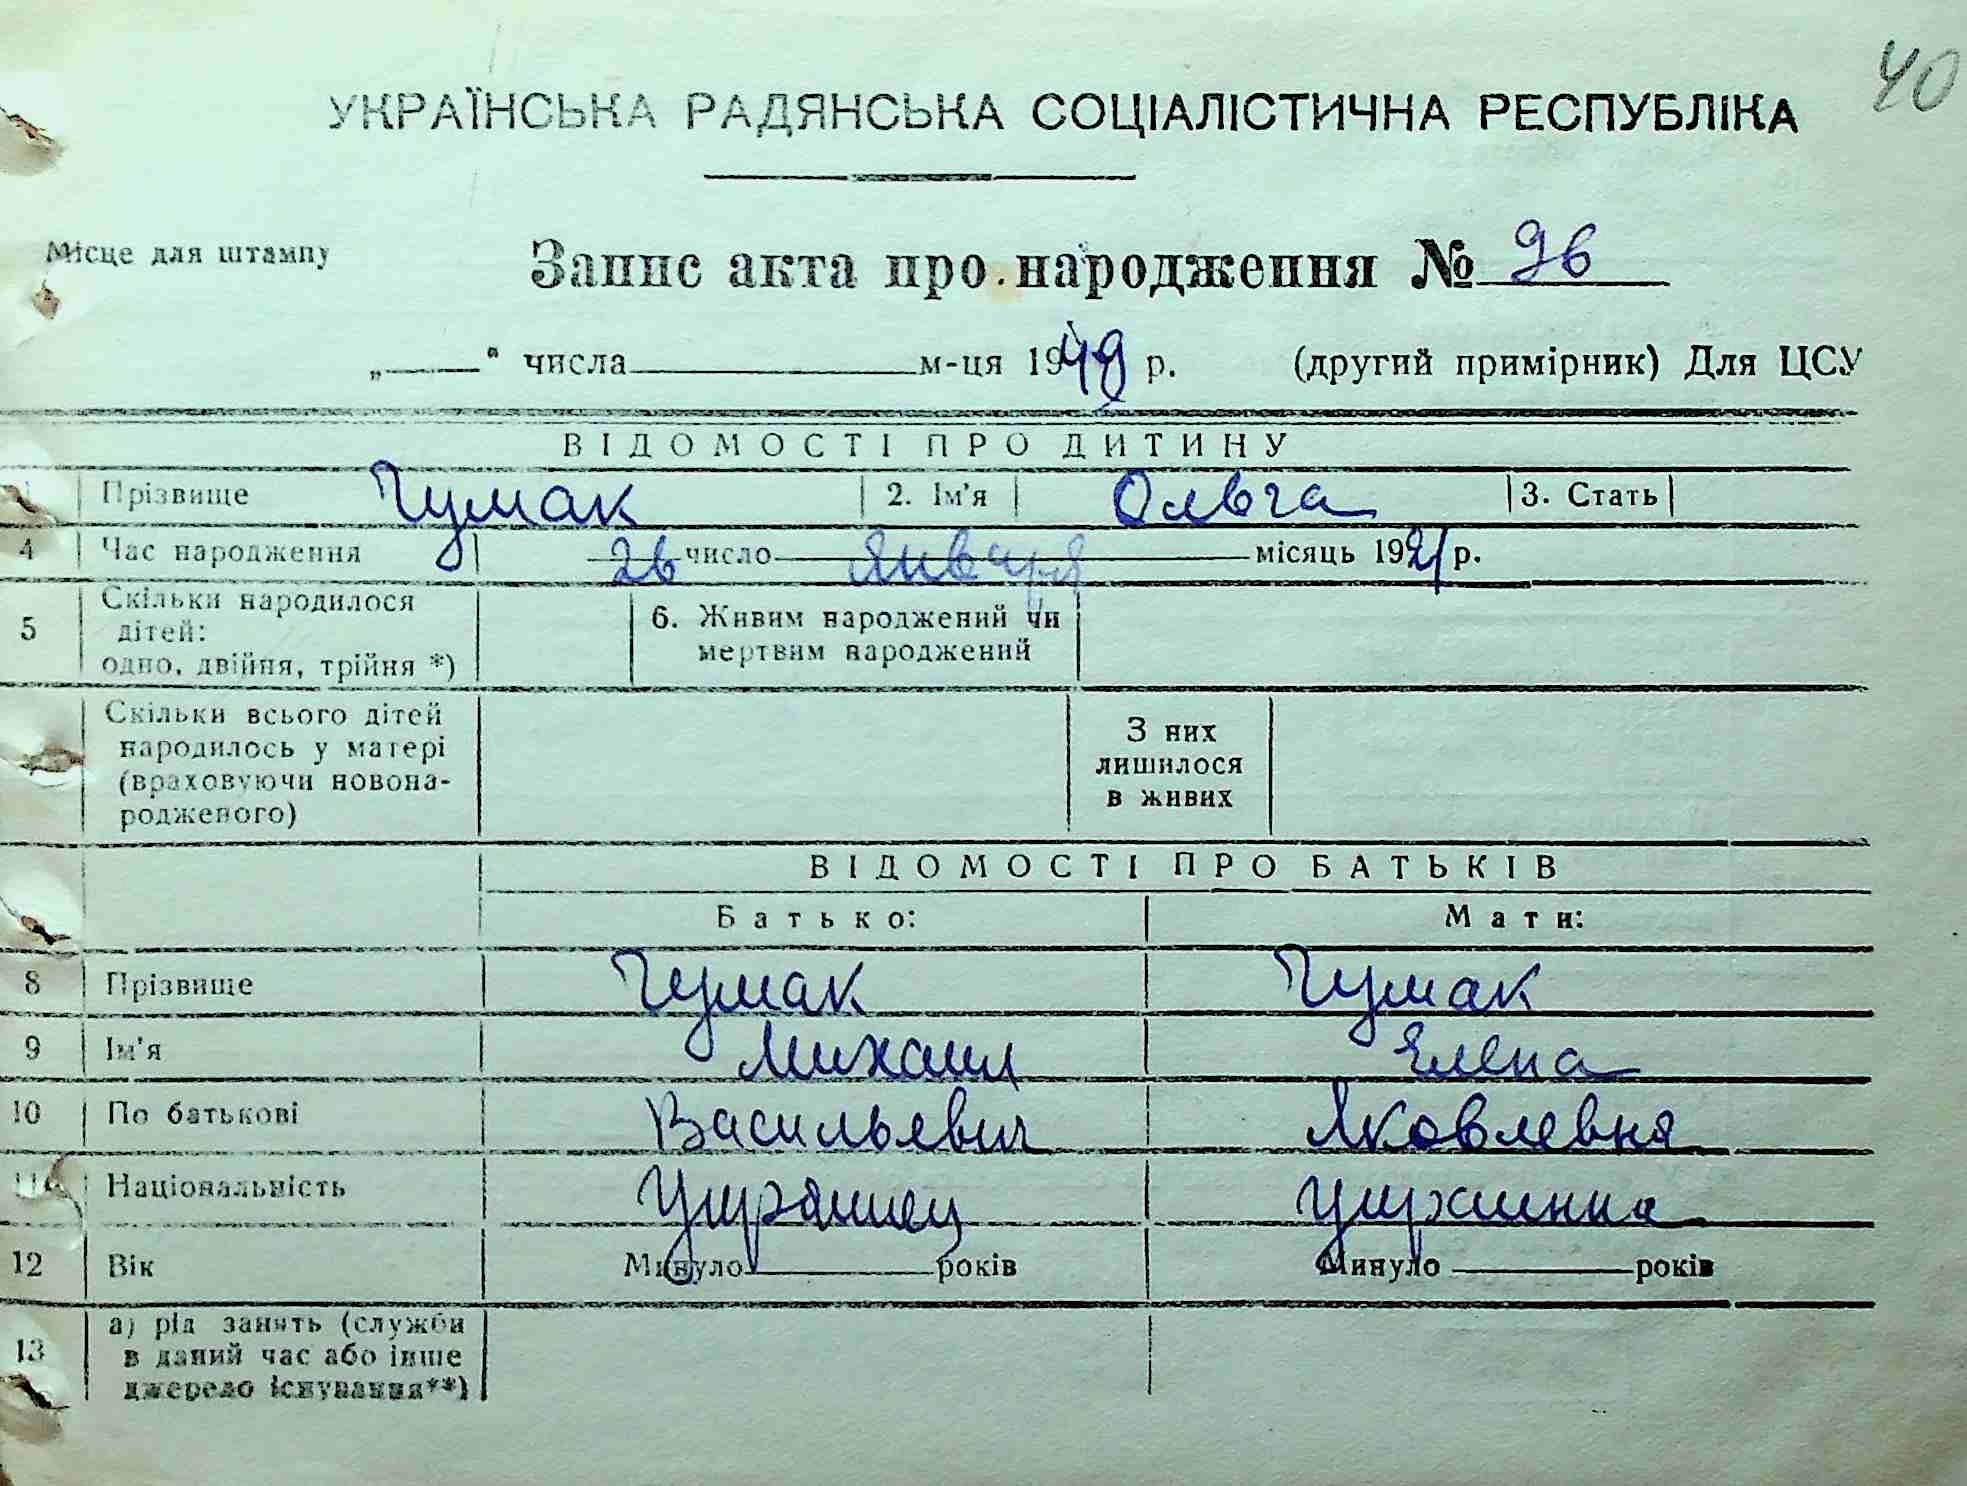 40
УКРАЇНСЬКА РАДЯНСЬКА СОЦІАЛІСТИЧНА РЕСПУБЛІКА
Місце для штампу
Запис акта про народження № 96
„ “ числа м-ця 1949 р. (другий примірник) Для ЦСУ
ВІДОМОСТІ ПРО ДИТИНУ
1 Прізвище Чумак 2. Ім'я Ольга 3. Стать
4 Час народження 26 число января місяць 1921 р.
5 Скільки народилося дітей: одно, двійня, трійня *) 6. Живим народжений чи мертвим народжений
Скільки всього дітей народилось у матері (враховуючи новона-родженого) З них лишилося в живих
ВІДОМОСТІ ПРО БАТЬКІВ
Батько: Мати:
8 Прізвище Чумак Чумак
9 Ім'я Михаил Елена
10 По батькові Васильевич Яковлевна
11 Національність Украинец Украинка
12 Вік Минуло років Минуло років
13 а) рід занять (служби в даний час або інше джерело існування**)